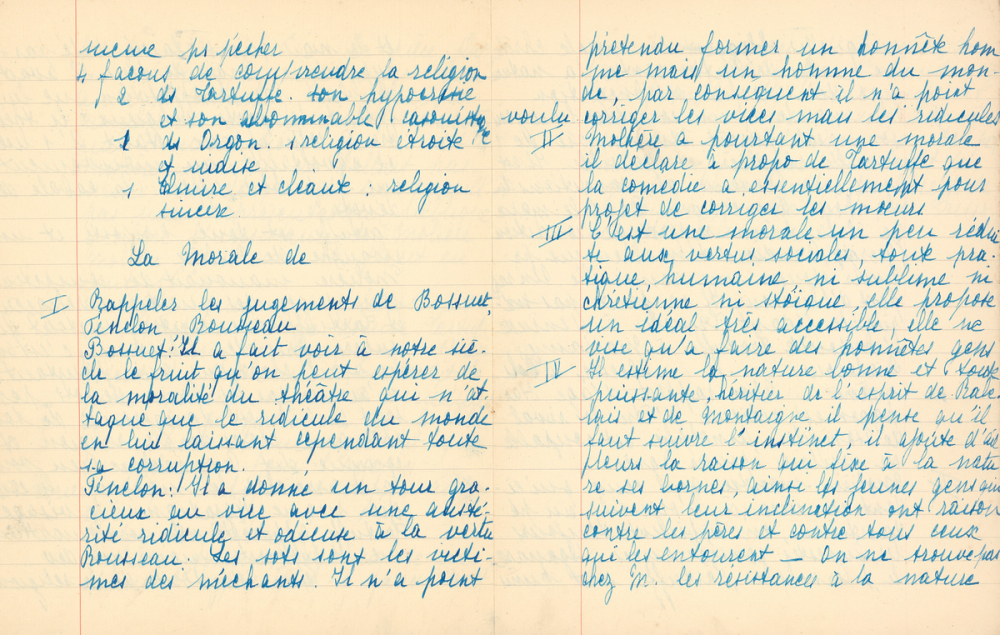 même ps pécher
4 façons de comprendre la religion
2 de Tartuffe. son hypocrisie
et son abominable casuistique
1 de Orgon. religion étroite
et viaise
1 Elmire et cléante : religion
sincère.
La Morale de
I Rappeler les jugements de Bossuet,
Fénelon Rousseau
Bossuet: Il a fait voir à notre siè-
cle le fruit qu'on peut espérer de
la moralité du théâtre qui n'at
taque que le ridicule du monde
en lui laissant cependant toute
sa corruption.
Fénelon: Il a donné un tour gra-
cieux au vice avec une austé-
rité ridicule et odieuse à la vertu
Rousseau. Les sots sont les victi-
mes des méchants. Il n'a point
prétendu former un honnête hom
me mais un homme du mon-
de, par conséquent il n'a point
voulu corriger les vices mais les ridicules
II Molière a pourtant une morale
il déclare à propo de Tartuffe que
la comédie a essentiellement pour
projet de corriger les moeurs
III C'est une morale un peu rédui
te aux vertus sociales, toute pra-
tique, humaine, ni sublime ni
chrétienne ni stoïque, elle propose
un idéal très accessible, elle ne
vise qu'a faire des honnêtes gens
IV Il estime la nature bonne et toute
puissante, héritier de l'esprit de Rabe-
lais et de Montaigne il pense qu'il
faut suivre l'instinct, il ajoute d'ail
leurs la raison qui fixe à la natu
re ses bornes, ainsi les jeunes gens qui
suivent leur inclination ont raison
contre les pères et contre tous ceux
qui les entourent — On ne trouve pas
chez M. les résistances à la nature